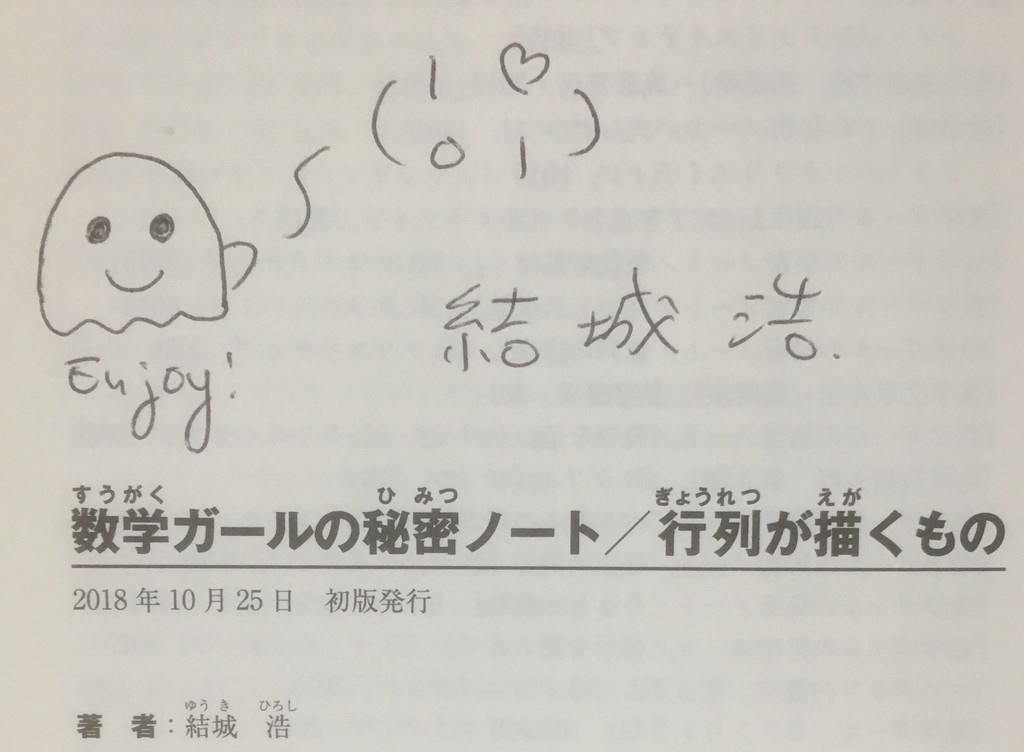 1 ♡
0 1
結城浩.
Enjoy!
すうがく ひみつ ぎょうれつ えが
数学ガールの秘密ノート／行列が描くもの
2018年10月25日 初版発行
ゆうき ひろし
著 者：結城 浩